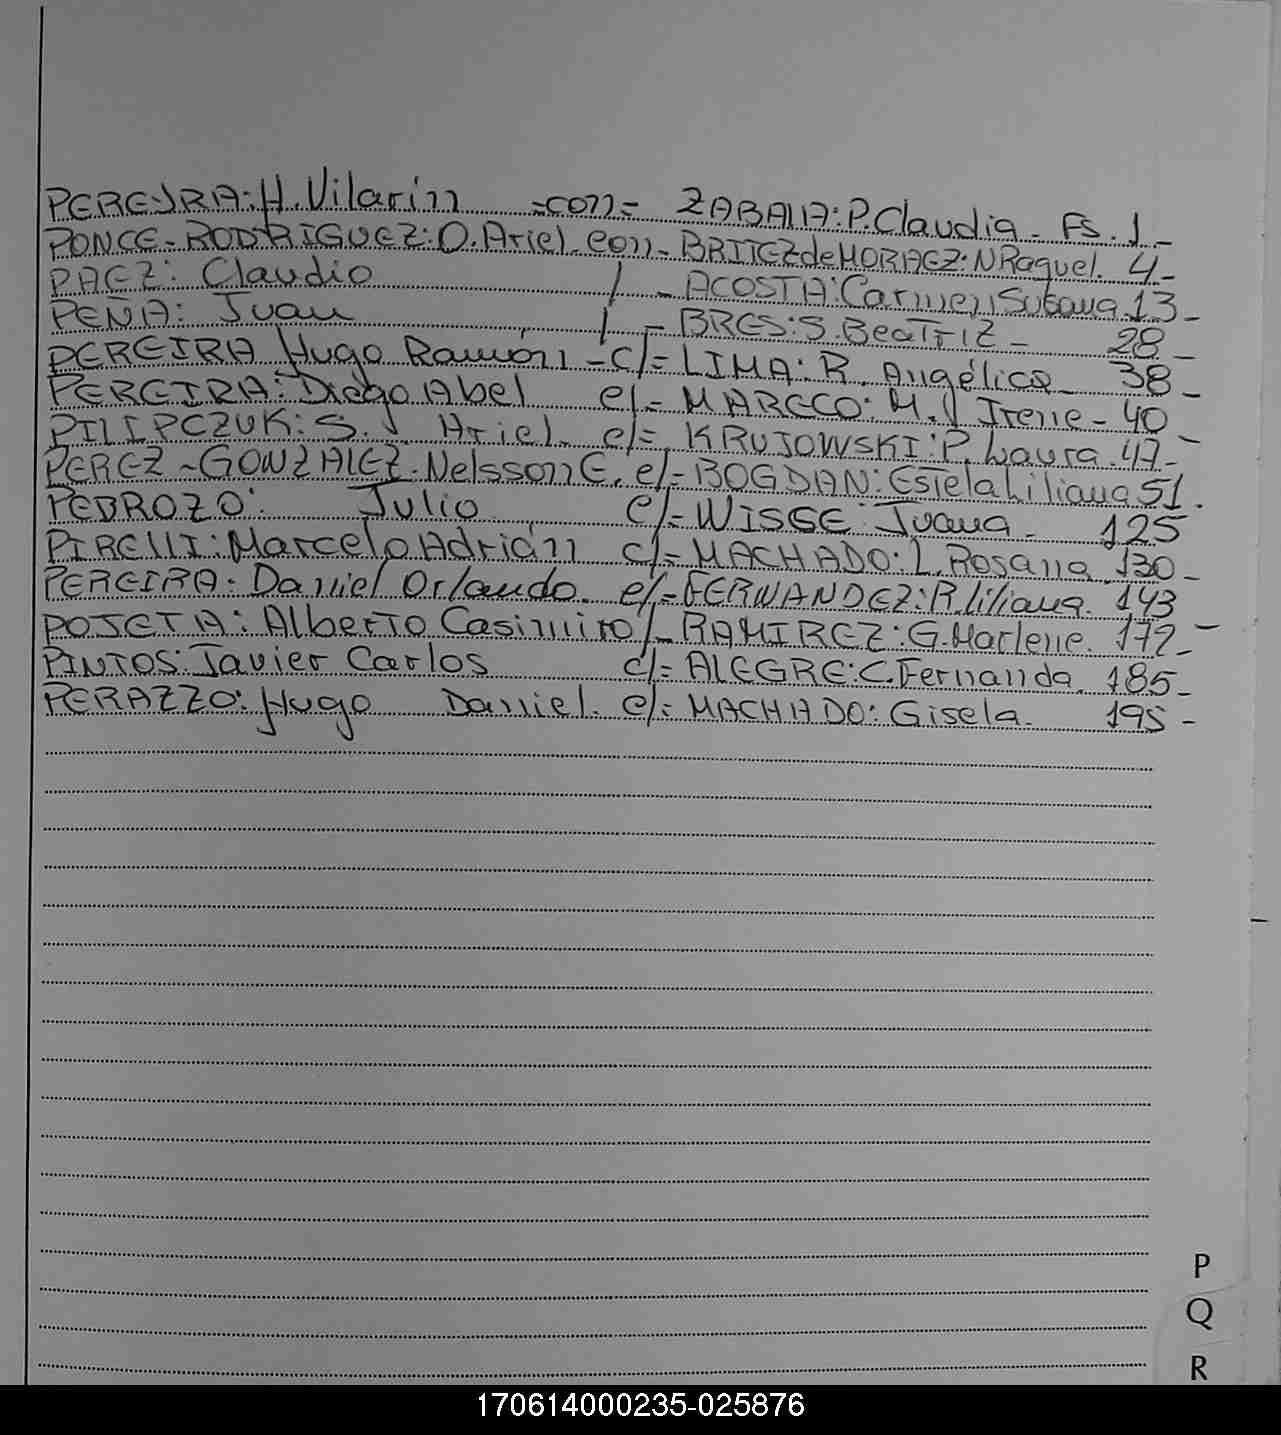 PEREYRA: H. Vilarin =con= ZABALA: P. Claudia - Fs. 1 -
PONCE - RODRIGUEZ: O. Ariel - con - BRITEZ de MORAEZ: N Raquel. 4 -
PAEZ: Claudio / - ACOSTA: Carmen Susana 13 -
PEÑA: Juan / - BRES: S. Beatriz - 28 -
PEREIRA Hugo Ramón - c/= LIMA: R. Angélica - 38 -
PEREIRA: Diego Abel c/= MARECO: M. Irene - 40
PILIPCZUK: S. Ariel. c/= KRUJOWSKI: P. Laura. 47 -
PEREZ - GONZALEZ. Nelsson E. c/= BOGDAN: Estela Liliana 51.
PEDROZO: Julio c/= WISSE: Juana - 125
PIRELLI: Marcelo Adrián c/= MACHADO: L. Rosana 130 -
PEREIRA: Daniel Orlando. c/= FERNANDEZ: R. Liliana. 143
POJETA: Alberto Casimiro / - RAMIREZ: G. Marlene. 172 -
PINTOS: Javier Carlos c/= ALEGRE: C. Fernanda. 185 -
PERAZZO: Hugo Daniel. c/= MACHADO: Gisela. 195 -
P
Q
R
170614000235-025876